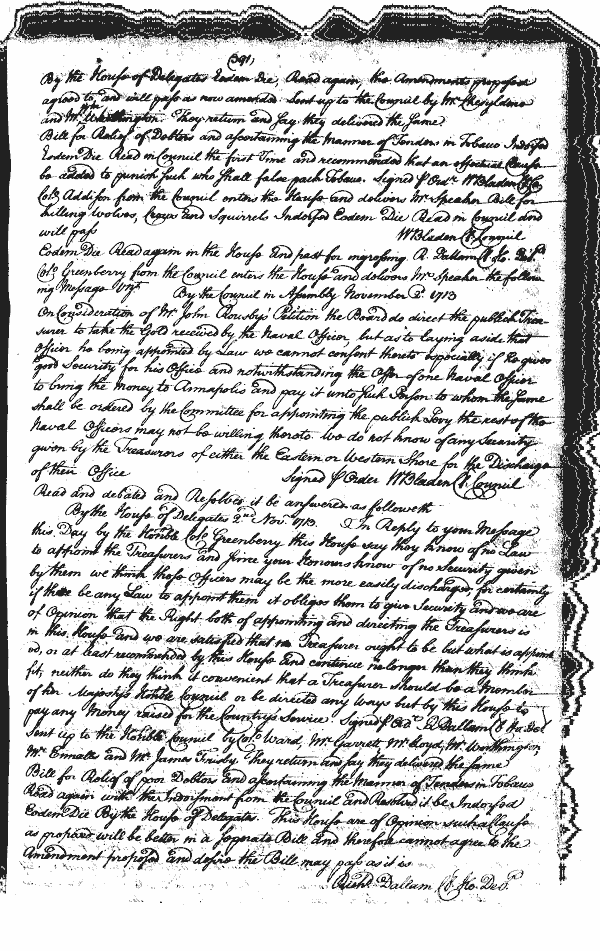 (391)
By the House of Delegates Eodem Die, Read again, the Amendments proposed
agreed to, and will pass as now amended. Sent up to the Council by Mr. Cheseldine
and Mr. Worthington. They return and say they delivered the same
Bill for Relief of Debtors and ascertaining the Manner of Tenders in Tobacco Indorsed
Eodem Die Read in Council the first Time and recommended that an effectual Clause
be added to punish such who shall false pack Tobacco. Signed p Ordr. WBladen Cl Co
Colo. Addison from the Council enters the House and delivers Mr. Speaker Bill for
killing Wolves, Crows and Squirrels Indorsed Eodem Die Read in Council and
will pass WBladen Cl Council
Eodem Die Read again in the House and past for engrossing. R. Dallam Cl Ho. Del.
Colo Greenberry from the Council enters the House and delivers Mr. Speaker the follow
ing Message Vizt. By the Council in Assembly November 2d. 1713
On Consideration of Mr. John Rousby's Petition the Board do direct the publick Trea
surer to take the Gold received by the Naval Officer, but as to laying aside that
Officer he being appointed by Law we cannot consent thereto especially if he gives
good Security for his Office and notwithstanding the Offer of one Naval Officer
to bring the money to Annapolis and pay it unto such Person to whom the same
shall be ordered by the Committee for apportioning the publick Levy the rest of the
Naval Officers may not be willing thereto. We do not know of any Security
given by the Treasurers of either the Eastern or Western Shore for the Discharge
of their Office Signed p Order WBladen Cl Council
Read and debated and Resolved it be answered as followeth
By the House of Delegates 2nd Nov. 1713. In Reply to your Message
this Day by the Honble Colo Greenberry, this House say they know of no Law
to appoint the Treasurers and since your Honours know of no Security given
by them we think those Officers may be the more easily discharged, for certainly
if there be any Law to appoint them it obliges them to give Security and we are
of Opinion that the Right both of appointing and directing the Treasurers is
in this House and we are satisfied that no Treasurer ought to be but what is appoint
ed, or at least recommended by this House and continue no longer than they think
fit, neither do they think it convenient that a Treasurer should be a Member
of her Majesty's Honble Council or be directed any ways but by this House to
pay any Money raised for the Country's Service. Signed p Ordr. R Dallam Cl Ho Del
Sent up to the Honble Council by Colo. Ward, Mr. Garrett, Mr. Lloyd, Mr. Worthington,
Mr. Ennalls and Mr. James Frisby. They return and say they delivered the same
Bill for Relief of poor Debtors and ascertaining the Manner of Tenders in Tobacco
Read again with the Indorsement from the Council and Resolved it be Indorsed
Eodem Die By the House of Delegates. This House are of Opinion such a Clause
as proposed will be better in a seperate Bill and therefore cannot agree to the
Amendment proposed and desire the Bill may pass as it is
Richd. Dallam Cl. Ho. Del.